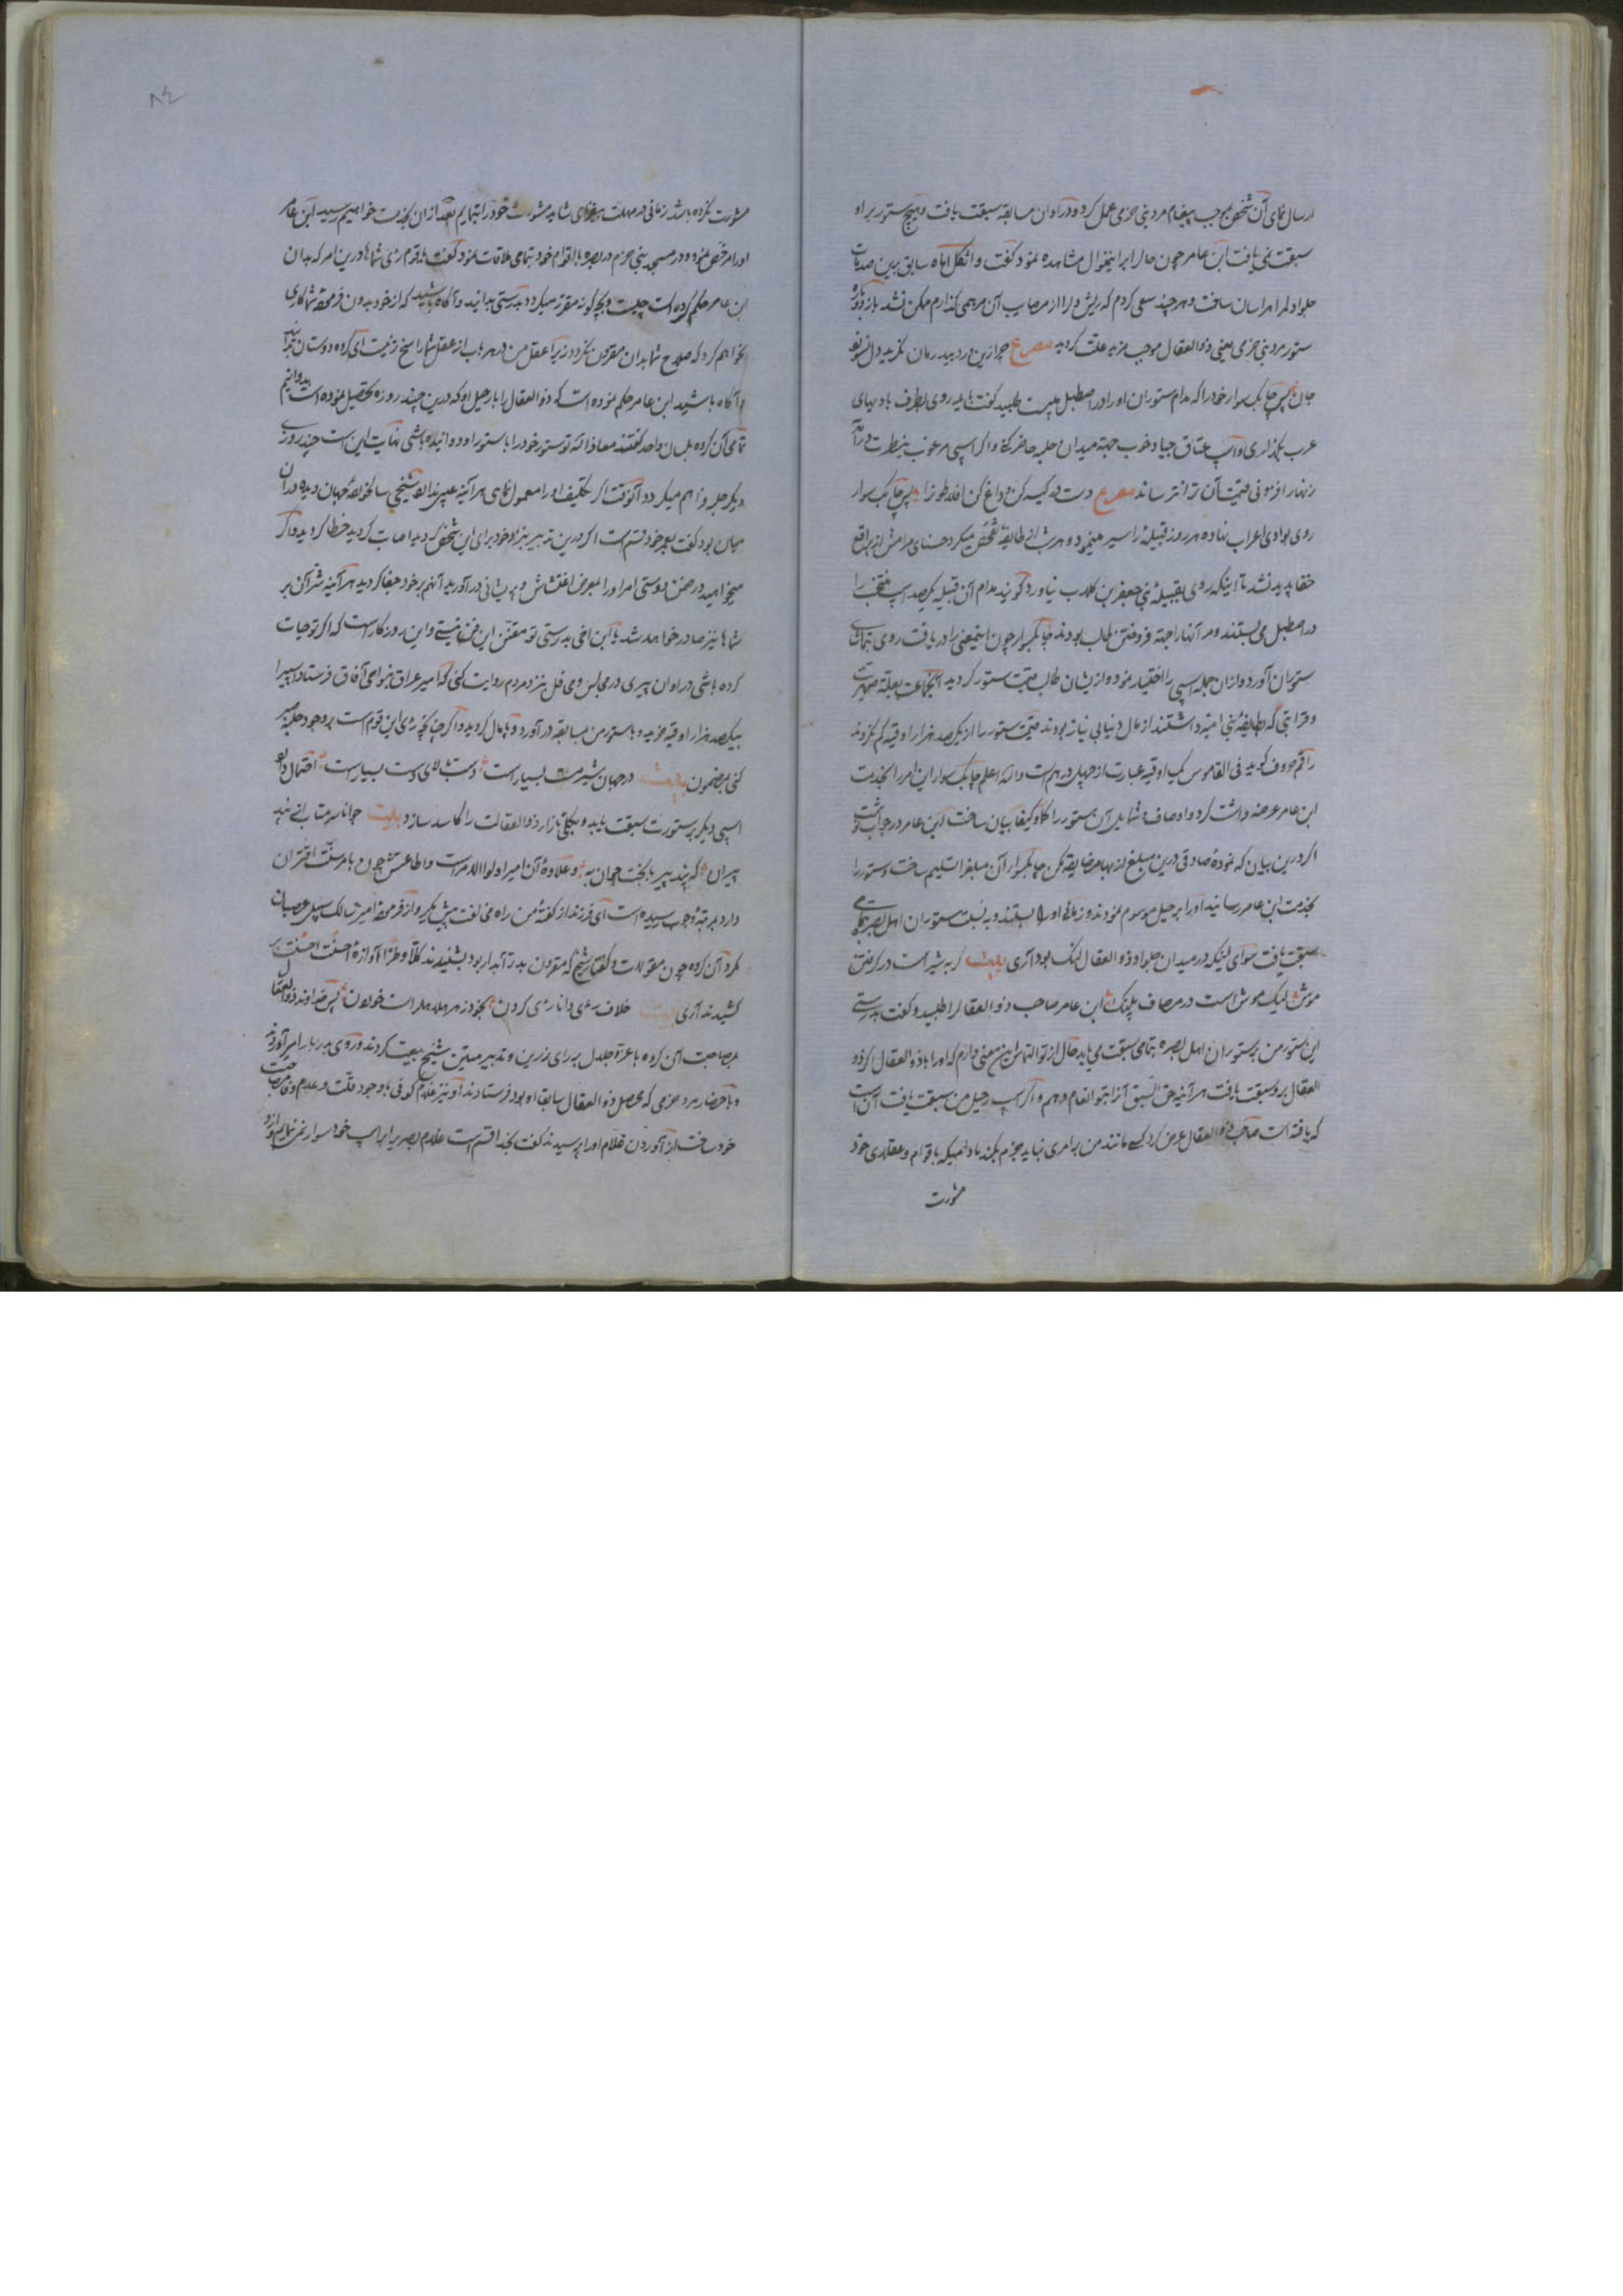 ارسال نمای آن شخص بموجب پیغام مرد بنی حزمی عمل کرد و در اوان مسابقه سبقت یافت و هیچ ستور بر او
سبقت نمی یافت ابن عامر چون حال را بر اینمنوال مشاهده نمود کفت واثکل اماه سابق برین صدمات
جلواد لمرا هراسان ساخت و هر چند سعی کردم که ریش دلرا از مصایب آن مرهمی کذارم ممکن نشد باز
ستور مرد بنی حزمی یعنی ذو العقال موجب مزید علت کردید مصرع جز ازین درد بیدرمان نکزید دل
جان پس چابک سوار خود را که مدام ستوران او را در اصطبل می بست طلبید کفت باید روی بطرف بادیهای
عرب بکذاری و اسپ عتاق جیاد خوب جهة میدان حلبه حاضر کنی و اکر اسپی مرغوب بنظرت درآید
زنهار افزونی قیمت آن ترا نترساند مصرع دست در کیسه کن و داغ کن افلاطون را پس چابک سوار
روی بوادی اعراب نهاده هر روز قبیلهٔ را سیر مینمود و هر شب از طایفهٔ تفحص میکرد حسنای مرامش از براقع
خفا پدید نشد تا اینکه روی بقبیلهٔ بنی جعفر ابن کلاب بیاورد کویند مدام آن قبیله یکصد اسپ منتخب را
در اصطبل می بستند و مر آنها را جهة فروختن طالب بودند چابکسوار چون اینمعنی را دریافت روی بتماشای
ستوران آورد و از ان جمله اسپی را اختیار نموده از ایشان طالب قیمت ستور کردید انجماعت بعلة صهریت
و قرابتی که بطایفهٔ بنی امیه داشتند از مال دنیایی نیاز بودند قیمت ستور را از یکصد هزار اوقیه کم نکردند
راقم حروف کوید فی القاموس یک اوقیه عبارت از چهل درهم است والله اعلم چابک سوار این امر را بخدمت
ابن عامر عرضه داشت کرد و اوصاف و شمایل آن ستور را کما و کیفا بیان ساخت ابن عامر در جواب نوشت
اکر درین بیان که نمودهٔ صادقی درین مبلغ از بها مضایقه مکن چابکسوار آن مبلغ را تسلیم ساخت و ستور را
بخدمت ابن عامر رسانید او را برحیل موسوم نمودند و زمانی او را بستند و به نسبت ستوران اهل بصره بتمامی
سبقت یافت سوای لنیک در میدان جلواد ذو العقال لنک بود آری بیت کربه شیر است در کرفتن
موش لیک موش است در مصاف پلنک ابن عامر صاحب ذو العقال را طلبید و کفت بدرستی
این ستور من بر ستوران اهل بصره بتمامی سبقت می یابد حال از تو التماس این معنی دارم که او را با ذو العقال اکر ذو
العقال برو سبقت یافت هر آینه حق السبق آنرا بتو انعام دهم و اکر اسپ رحیل من سبقت یافت آن است
که یافته است صاحب ذو العقال عرض کرد کسی مانند من بر امری نباید جزم بکند مادامیکه باقوام و عقلای خود
مشورت
۸٤
مشورت نکرده باشد زمانی در مهلت بیفزای شاید مشورت خود را بنمایم بعد از ان بخدمت خواهیم رسید ابن عامر
او را مرخص نموده و در مسجد بنی حزم در بصره با اقوام خود بتمامی ملاقات نمود کفت یا قوم رای شماها درین امر که بدان
ابن عامر حکم کرده است چیست و بچکونه مقرر میکردد بدرستی بدانید و آکاه باشید که از خود بدون فرمودهٔ شما کاری
نخواهم کرد که صلاح شما بدان مقرون نکردد زیرا عقل من در هر باب از عقل شما راسخ تر نیست ای کروه دوستان بدانید
و آکاه باشید ابن عامر حکم نموده است که ذو العقال را با رحیل او که درین چند روزه تحصیل نموده است بدوانیم
تمامی آن کروه بلسان واحد کفتند معاذ الله تو ستور خود را با ستور او دوانیده باشی نهایت این است چند روزی
دیکر حلبه فراهم میکردد آنوقت اکر تکلیف او را معمول نمایی هر آینه عیبی ندارد شیخی سالخوردهٔ جهان دیده در ان
میان بود کفت بعمر خود قسم است اکر درین تدبیر بنزاد خود برای این شخص کردید اصابت کردید خطا کردید و اکر
میخواهید در ضمن دوستی امر او را بمعرض اغتشاش و پریشانی درآورید آنهم بر خود جفا کردید هر آینه شر آن بر
شماها نیز صادر خواهد شد یا ابن اخی بدرستی تو مفتن این فن نیستی و این روزکار است که اکر تو حیات
کرده باشی در اوان پیری در مجالس و محافل بنزد مردم روایت کنی که امیر عراق بنواحی آفاق فرستاد و اسپی را
بیکصد هزار اوقیه خرید و با ستور من بمسابقه درآورد و پامال کردید و اکر چنانچه رای این قوم است بر وجود حلبه صبر
کنی بمضمون بیت در جهان شیرمست بسیار است دست بالای دست بسیار است احتمال دارد
اسپی دیکر بر ستورت سبقت یابد و بکلی بازار ذو العقالت را کاسد سازد بیت جوانا سر متاب از پند
پیران که پند پیر با بخت جوان به و علاوهٔ آن امیر اولوا الامر است و اطاعتش چون با مر سنت اقتران
دارد بمرتبهٔ وجوب رسیده است ای فرزند از کفتهٔ من راه مخالفت پیش مکیر و از فرمودهٔ امیرت سالک سبیل عصیان
مکرد آن کروه چون مقولات و کفتار شیخ که مقرون بدرّ آبدار بود بشنیدند کلا و طرا آوازهٔ احسنت احسنت بر
کشیدند آری بیت خلاف رای دانا رای کردن بخود زهر هلاهل است خوردن پس خداوند ذو العقال
بمصاحبت آن کروه با عز و جلال به رای زرین و تدبیر متین شیخ بیعت کردند و روی بدربار امیر آوردند
و باحضار مرد حزمی که محصل ذو العقال سابقا او بود فرستادند او نیز غلام کوفی با وجود قلت و عدم مصاحبت
خود ساخت از آوردن غلام او را پرسیدند کفت بخدا قسم است غلام بصری را بر اسپ خود سوار نمی نمایم